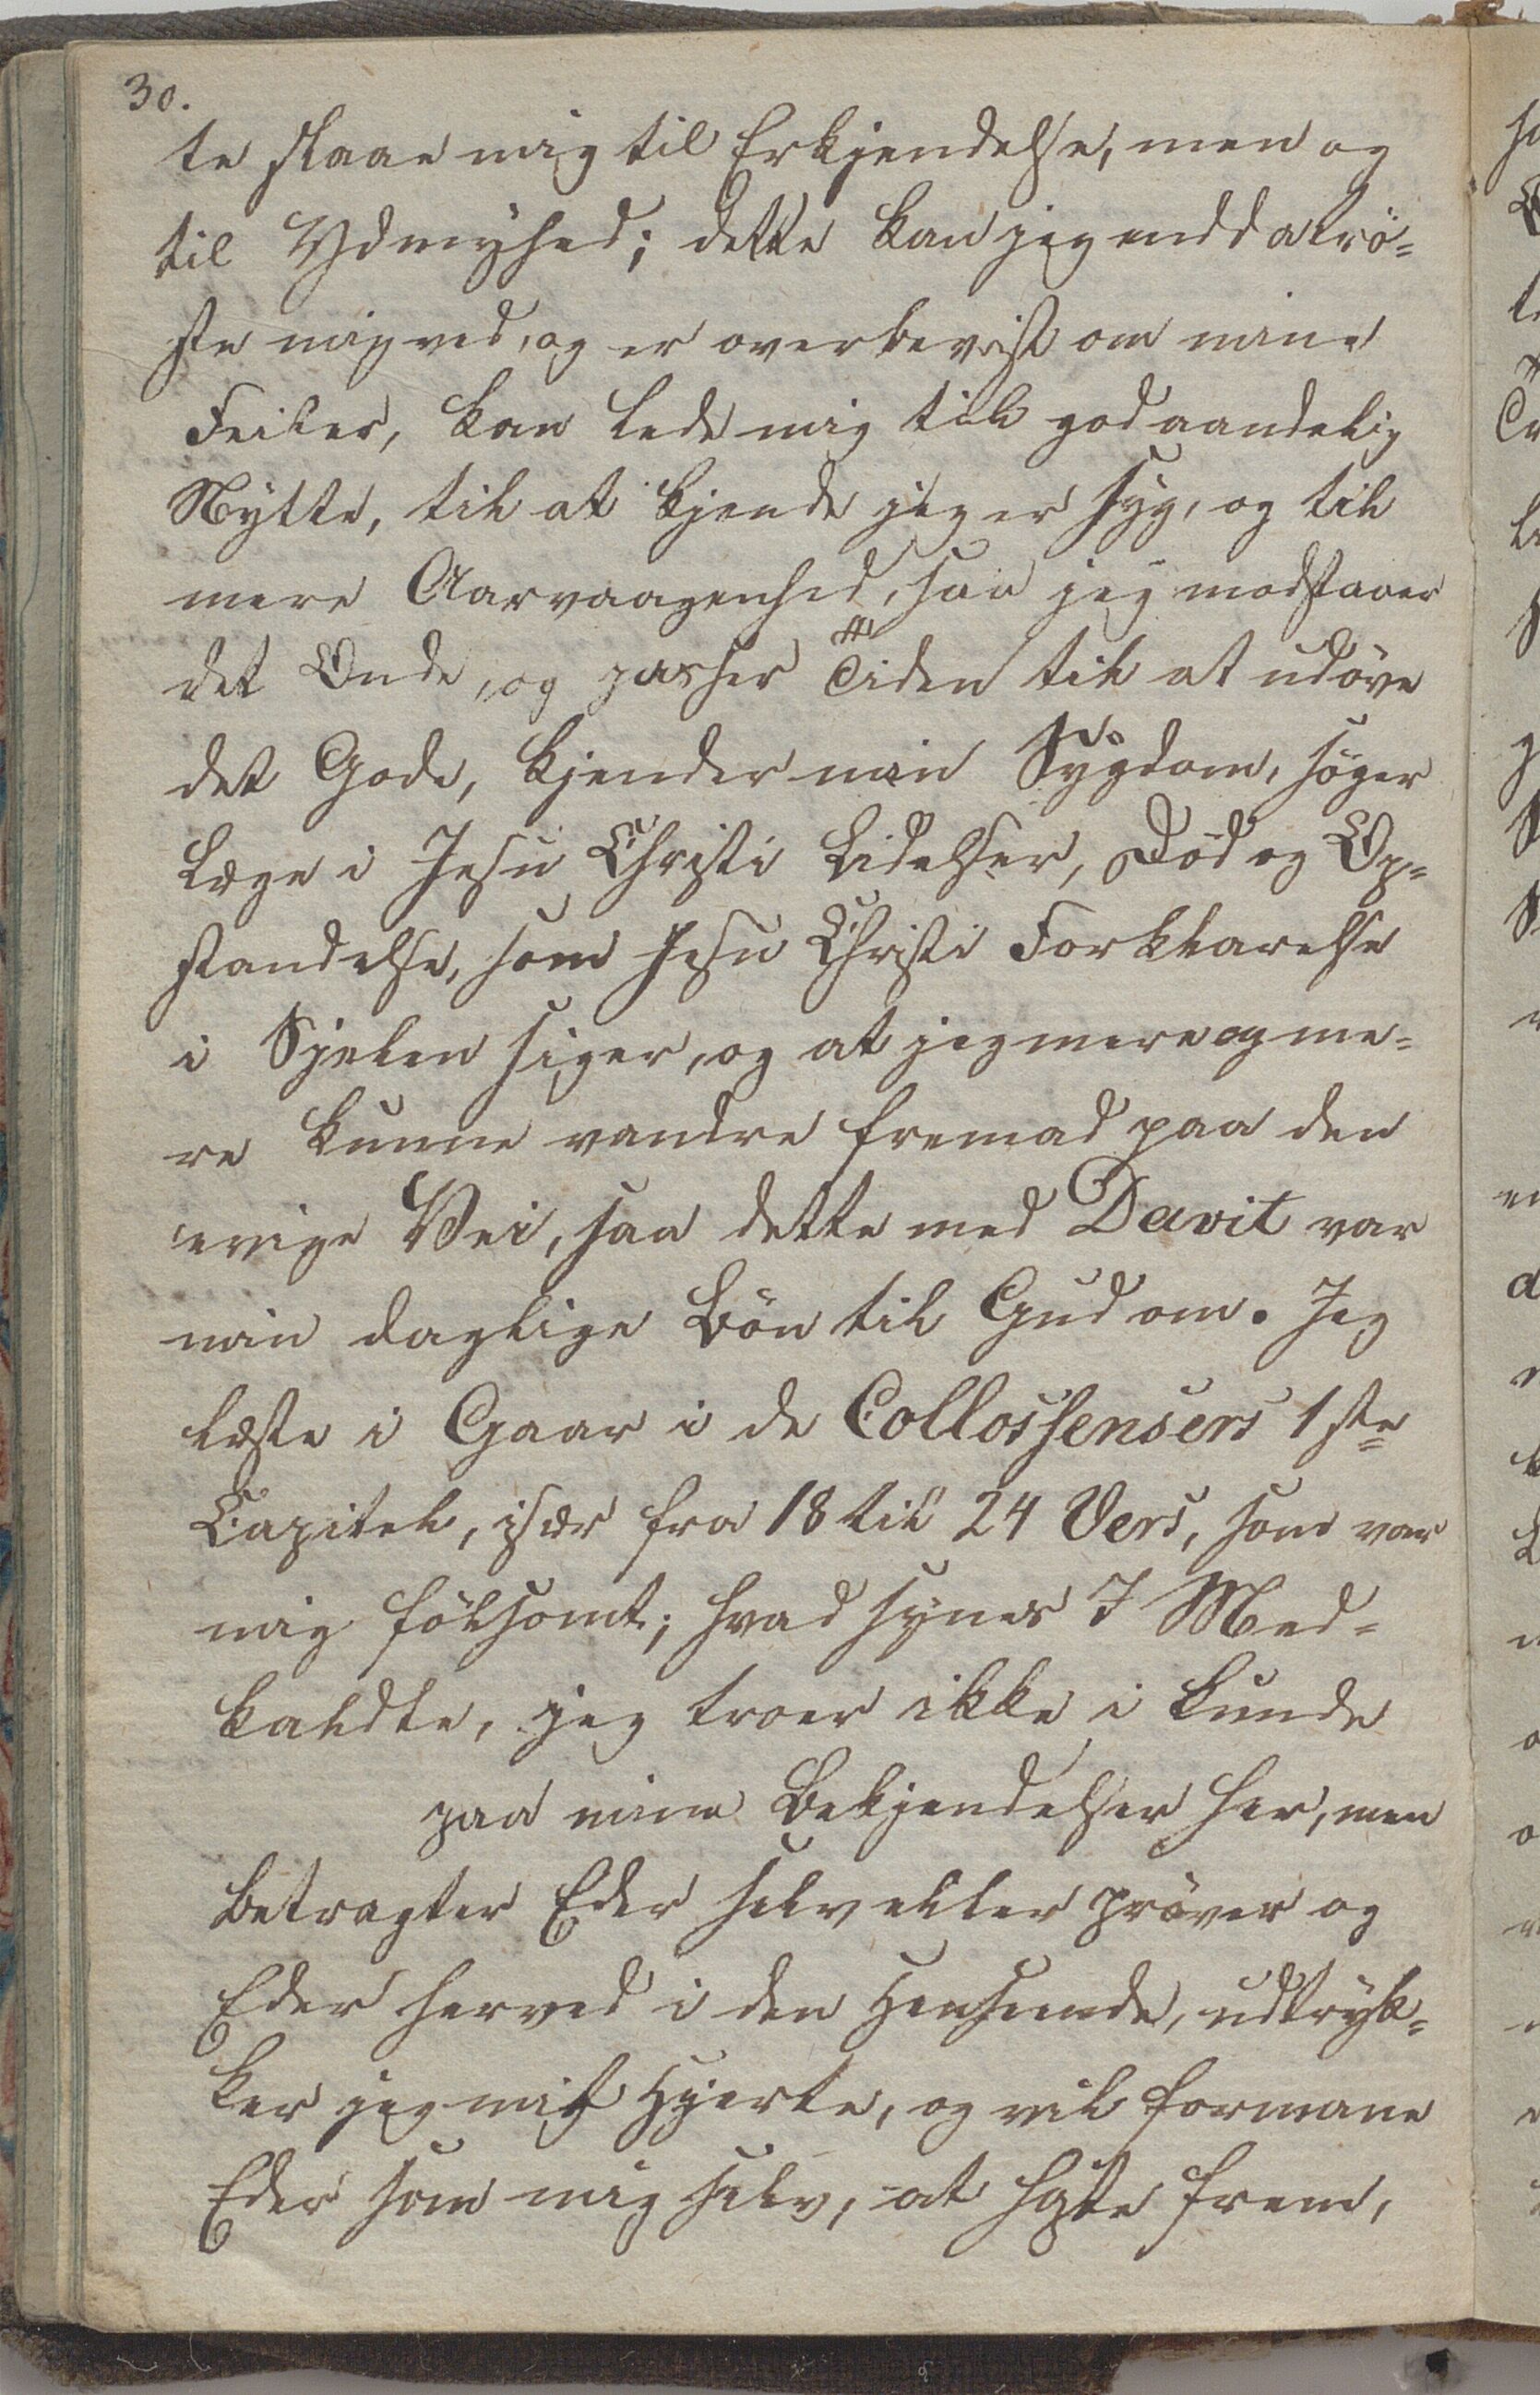 30.
te staae mig til Erkjendelse, men og
til Ydmyghed; dette kan jeg endda trö=
ste mig ved, og er overbevist om mine
Feiler, kan lede mig til god aandelig
Nytte, til at kjende jeg er syg, og til
mere Aarvaagenhed, saa jeg modstaaer
det Onde, og passer Tiden til at udöve
det Gode, kjender min Sygdom, söger
Læge i Jesu Christi Lidelser, Död og Op=
standelse, som Jesu Christi Forklarelse
i Sjelen siger, og at jeg mere og me=
re kunne vandre fremad paa den
evige Vei, saa dette med Davit var
min daglige Bön til Gud om. Jeg
læste i Gaar i de Collossensers 1ste
Capitel, især fra 18 til 24 Vers, som var
mig fölsomt; hvad synes I Med=
kaldte, jeg troer ikke i kunde
paa mine Bekjendelser her, men
betragter Eder selv eller pröver og
Eder herved i den Henseende, udtryk=
ker jeg mit Hjerte, og vil formane
Eder som mig selv, at haste frem,